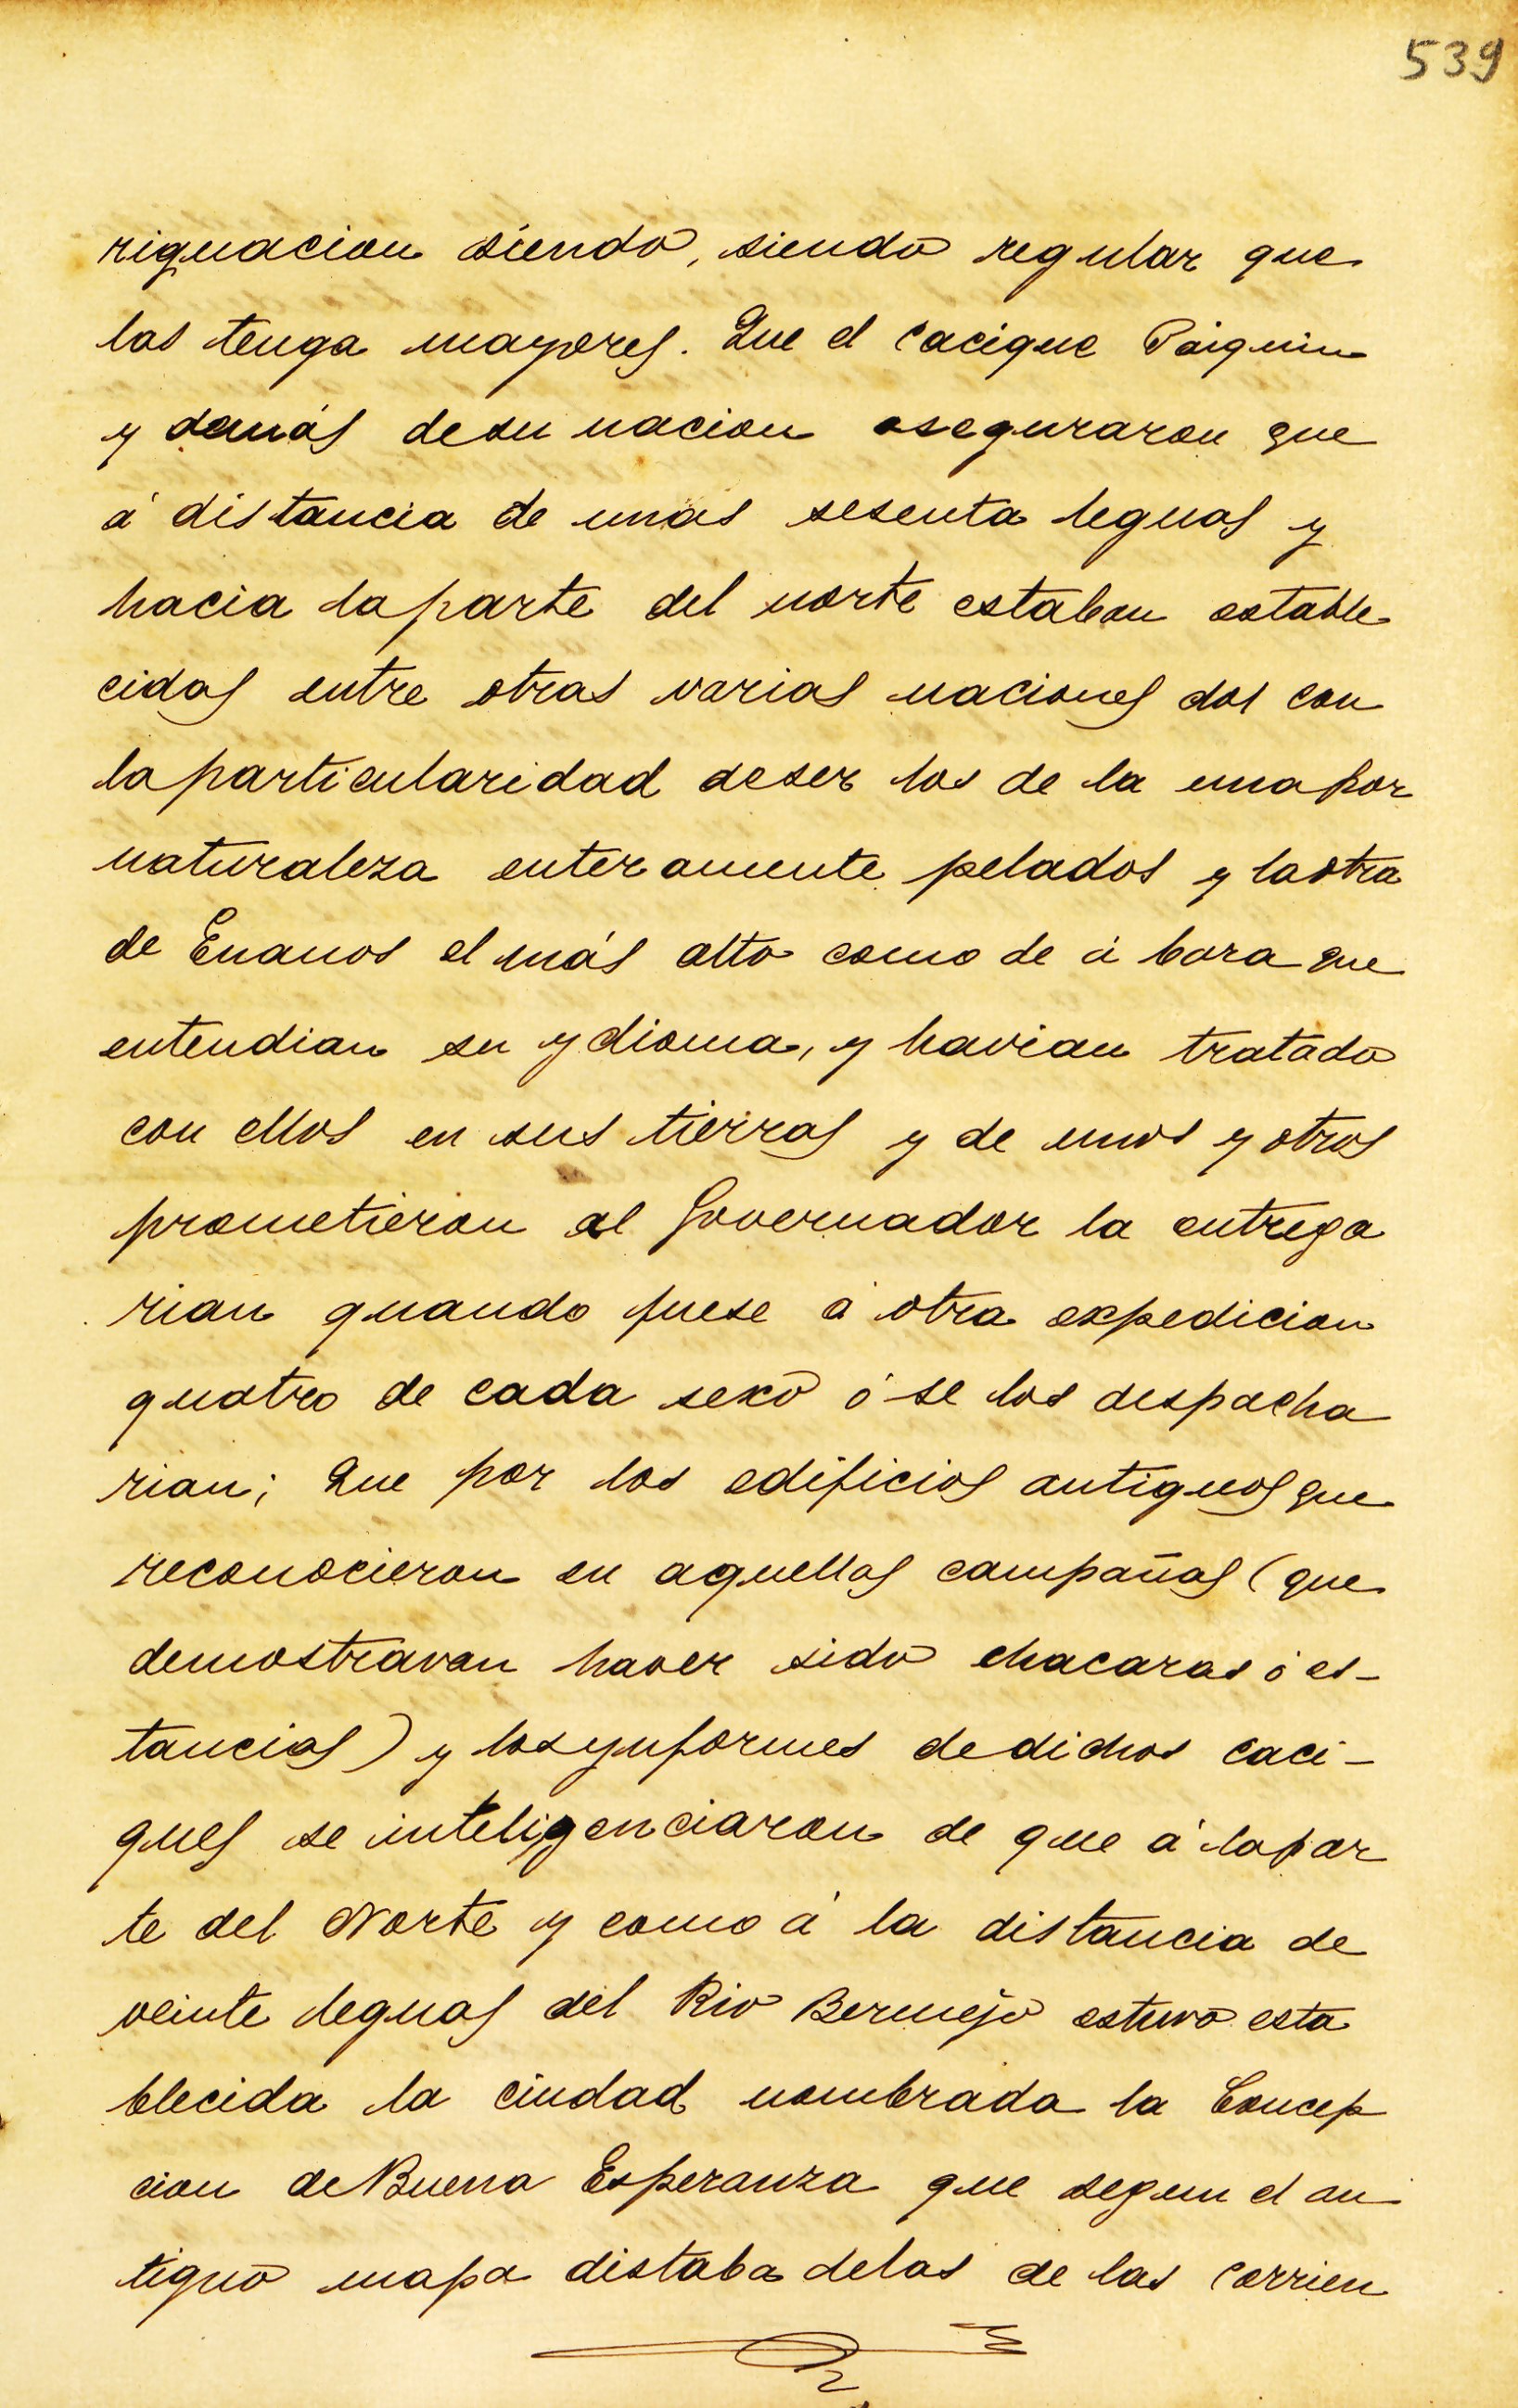 539
riguacion siendo, siendo regular que
las tenga mayores. Que el cacique Paiquin
y demás desu nacion aseguraron que
á distancia de unas sesenta leguas y
hacia laparte del norte estaban estable
cidas entre otras varias naciones dos con
laparticularidad deser los de la una por
naturaleza enteramente pelados y laotra
de Enanos el más alto como de á bara que
entendian su ydioma, y havian tratado
con ellos en sus tierras y de unos y otros
prometieron al Governador la entrega
rian quando fuese á otra expedicion
quatro de cada sexo ó se los despacha
rian; Que por los edificios antiguos que
reconocieron en aquellas campañas (que
demostravan haver sido chacaras ó es-
tancias) y losynformes dedichos caci-
ques se inteligenciaron de que á lapar
te del Norte y como á la distancia de
veinte leguas del Rio Bermejo estuvo esta
blecida la ciudad nombrada la Concep
cion deBuena Esperanza que segun el an
tiguo mapa distaba delas de las Corrien